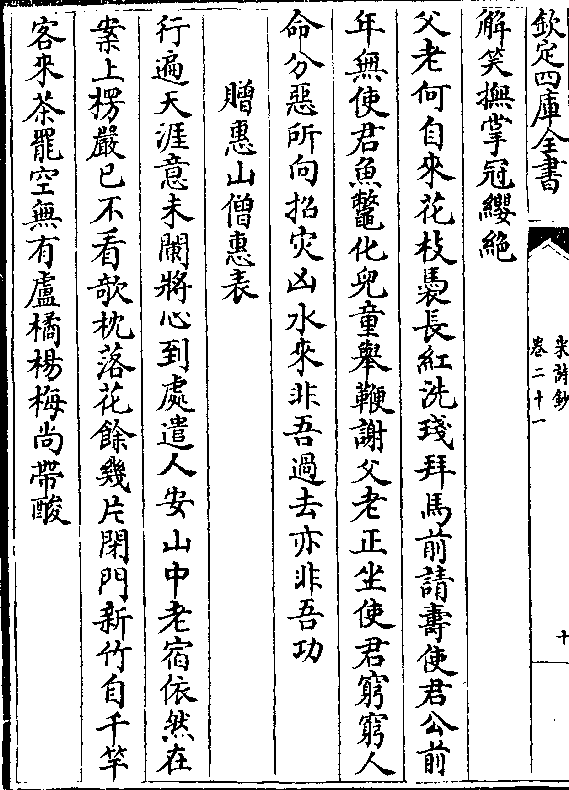 欽定四庫全書
宋詩鈔
卷二十一
十
解笑撫掌冠纓絶
父老何自來花枝裊長紅洗琖拜馬前請壽使君公前
年無使君魚鼈化兒童舉鞭謝父老正坐使君窮窮人
命分惡所向招灾凶水來非吾過去亦非吾功
贈惠山僧惠表
行遍天涯意未闌將心到處遣人安山中老宿依然在
案上楞嚴已不看欹枕落花餘幾片閉門新竹自千竿
客來茶罷空無有盧橘楊梅尚帶酸